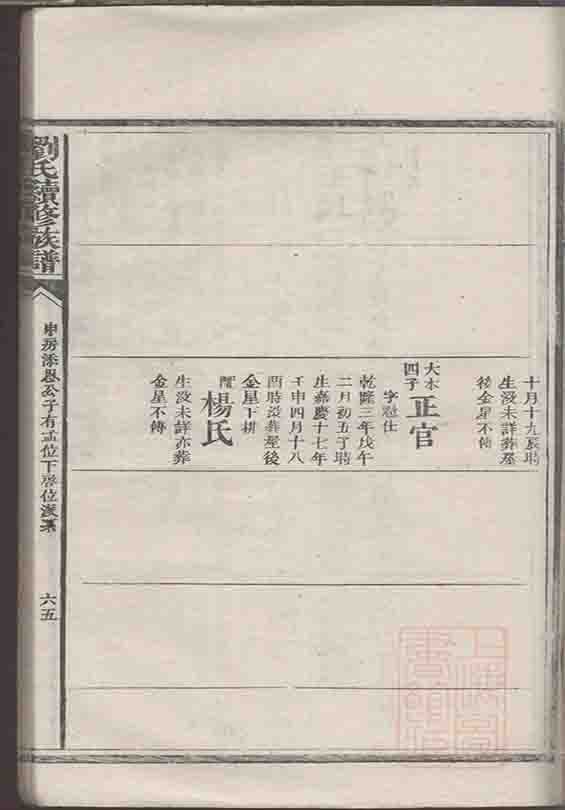 十月十九辰時
生沒未詳葬屋
後金星不傳
大本
四子
正官
字
仕
乾隆三年戊午
二月初五丁時
生嘉慶十七年
壬申四月十八
酉時沒葬屋後
金星下耕
配
楊氏
生沒未詳亦葬
金星不傳
劉氏續修族譜
房添恩公子有孟位下啓位派系
六五